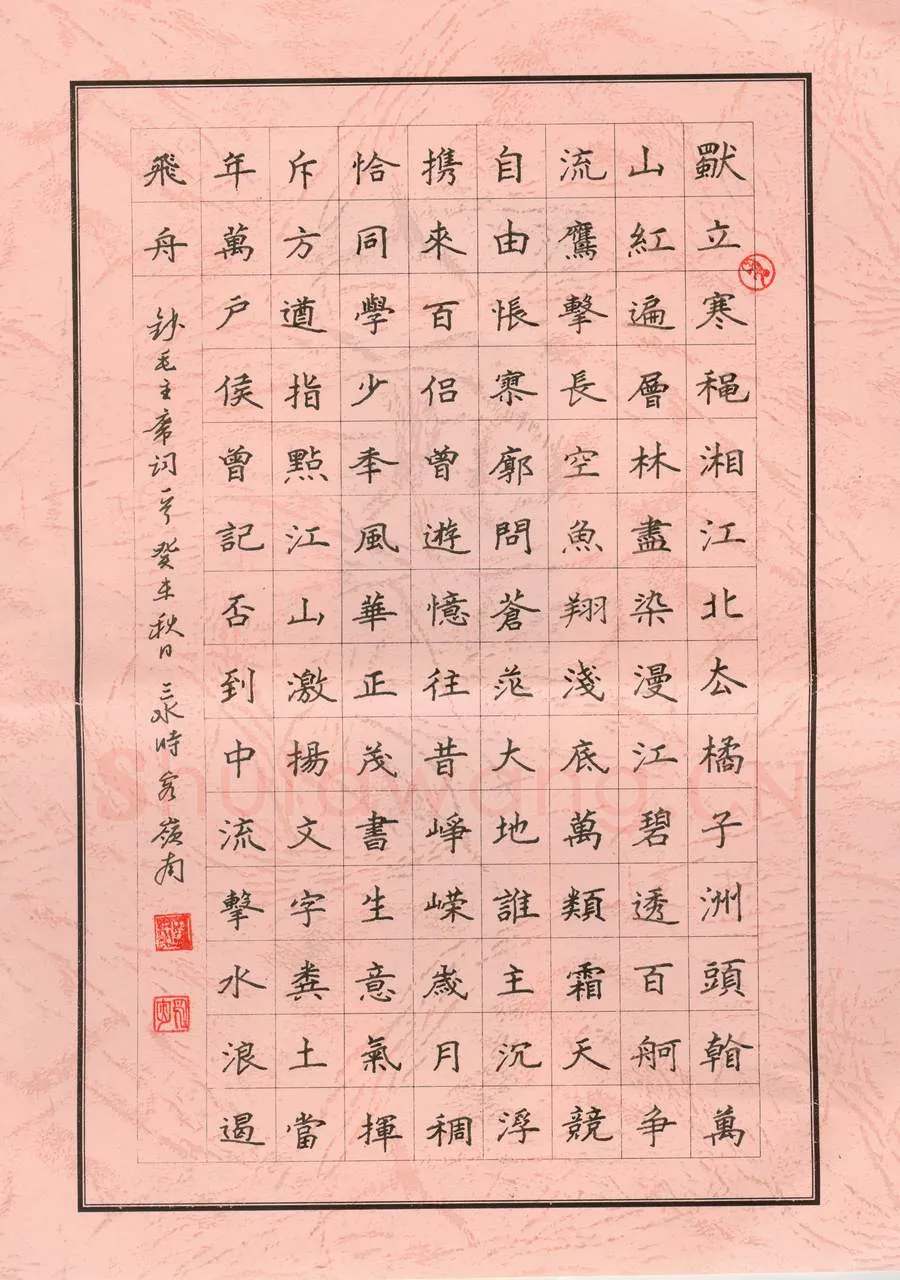 獨立寒穐湘江北去橘子洲頭看萬
山紅遍層林盡染漫江碧透百舸争
流鷹擊長空魚翔淺底萬類霜天競
自由悵寥廓問蒼茫大地誰主沉浮
携來百侣曾遊憶往昔崢嶸歲月稠
恰同學少秊風華正茂書生意氣揮
斥方遒指點江山激揚文字糞土當
年萬户侯曾記否到中流擊水浪遏
飛舟 鈔毛主席詞一首癸未秋日三水時客嶺南
Shufawang.CN